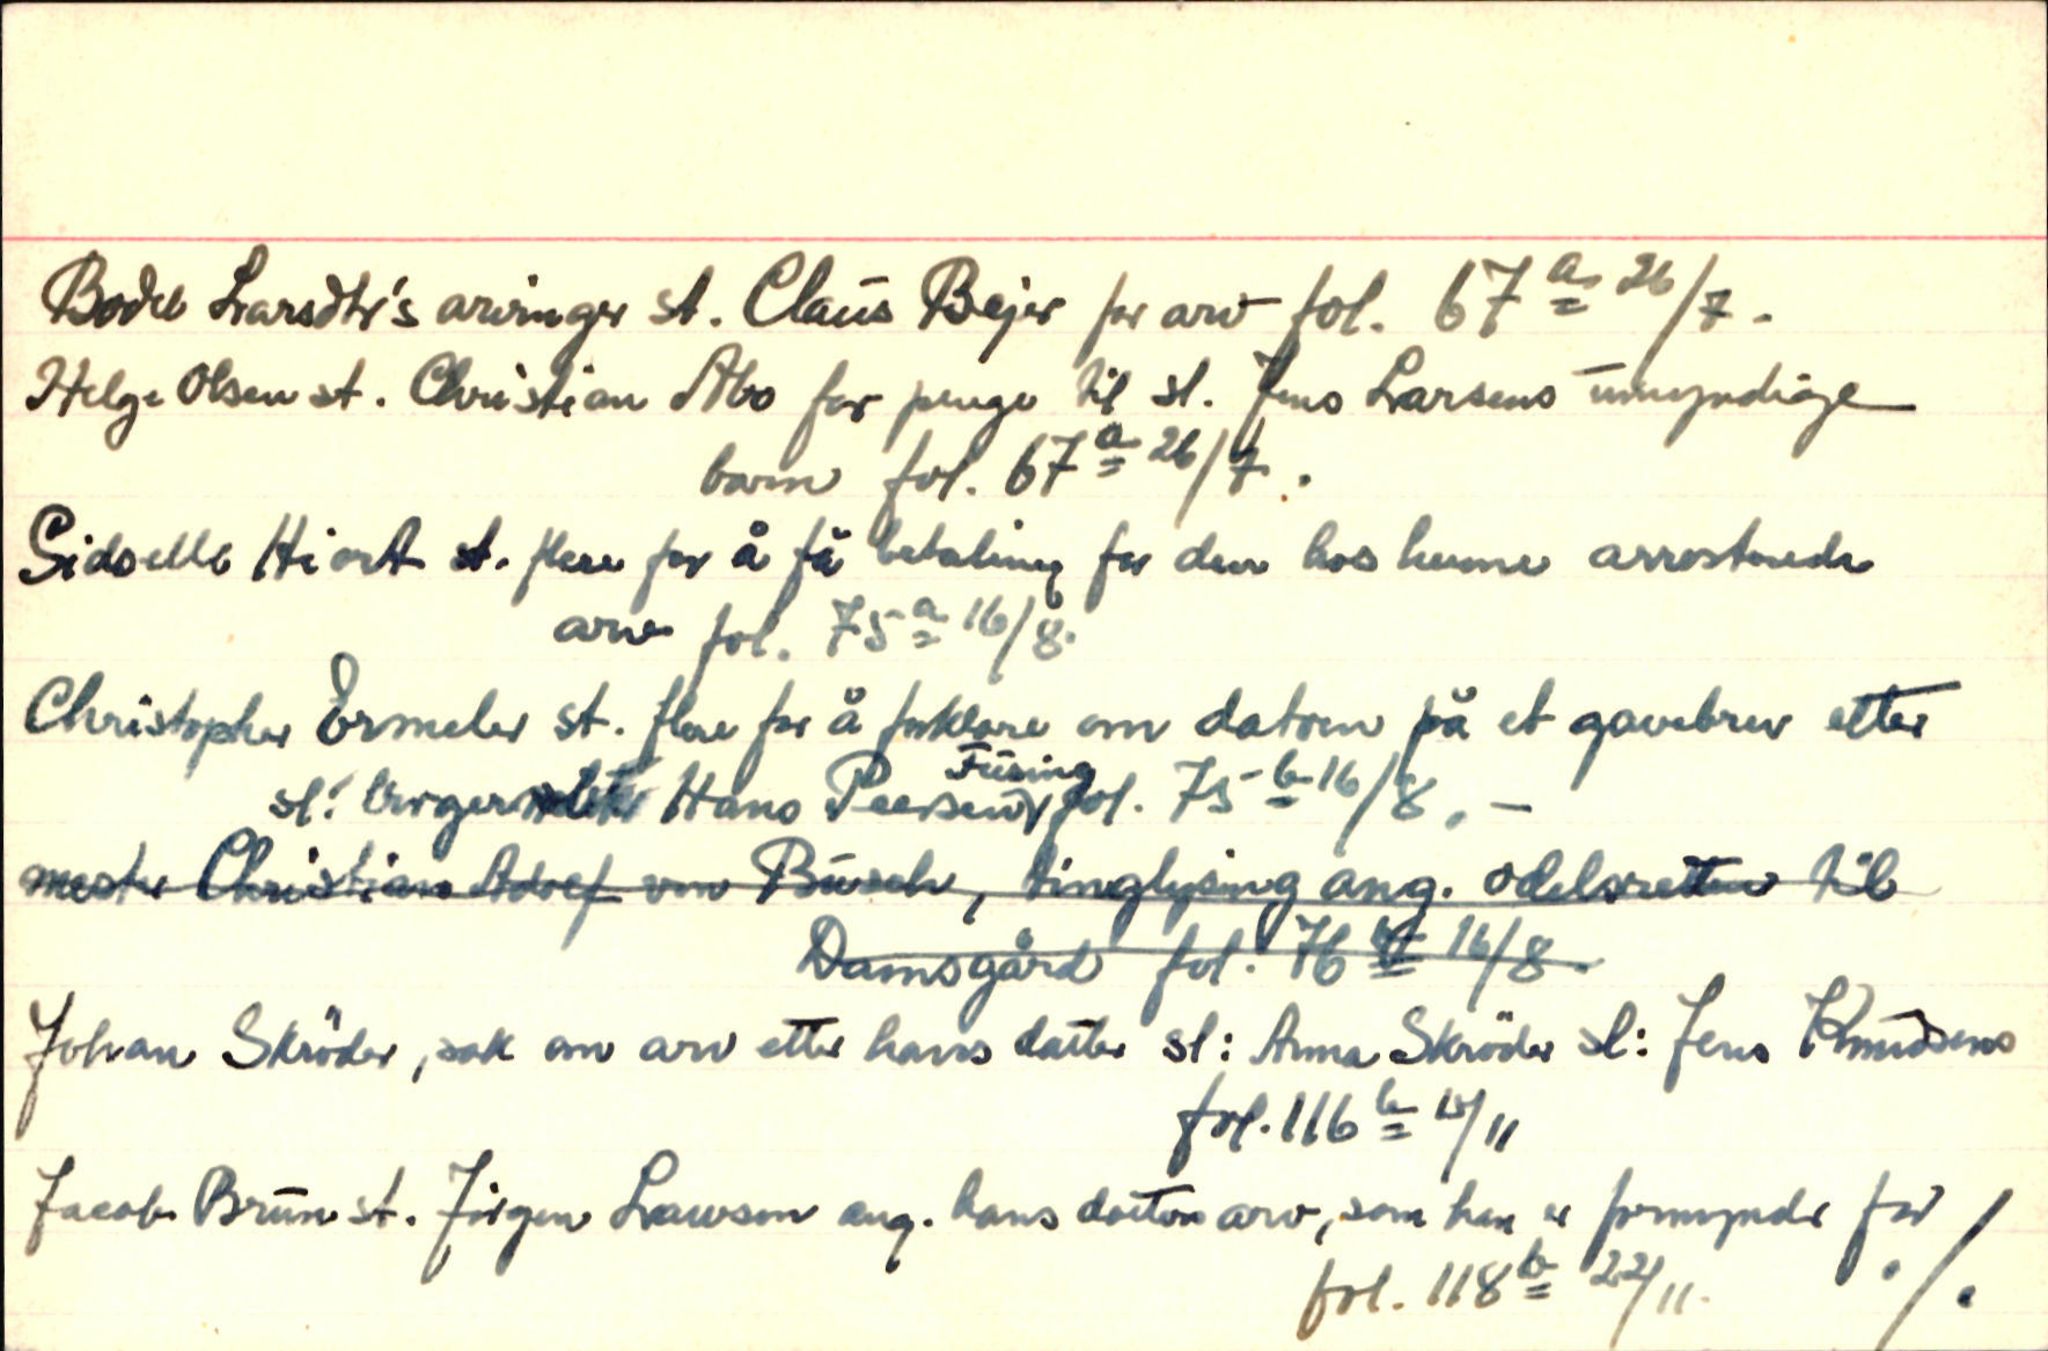 Bodel Larsdtr's arvinger st. Claus Bejer for arv fol. 67 a 26/7.
Helge Olsen st. Christian Abo for penge til sl. Jens Larsens umyndige
barn fol. 67 a 26/7.
Sidselle Hiort st. flere for å få betaling for den hos henne arresterede
arv fol. 75 a 16/8.
Christopher Ermeler st. flere for å forklare om datoen på et gavebrev etter
sl: Hans Peersen Fusing fol. 75 b 16/8. -
mester Christian Adolf von Busch, tinglysing ang. odelsretten til
Damsgård fol. 76 16/8.
Johan Skröder, sak om arv etter hans datter sl: Anna Skröder sl: Jens Knudsens
fol. 116 b /11
Jacob Brun st. Jörgen Lawson ang. hans datters arv, som han er formynder for
fol. 118 b 22/11. ./.